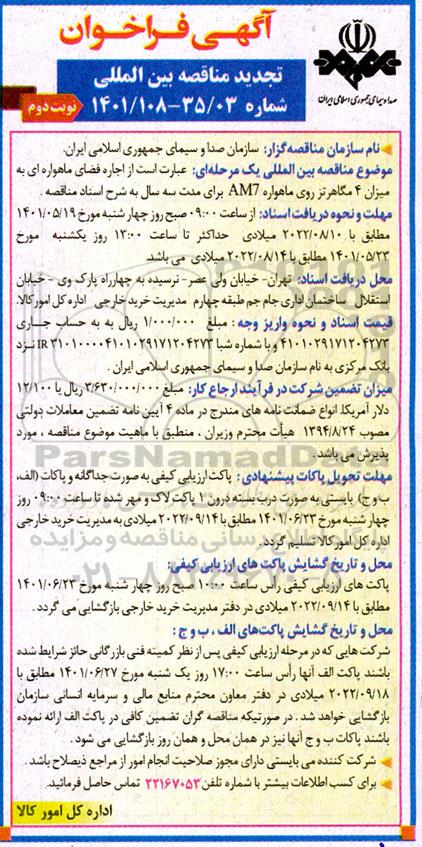 آگهی فراخوان
صدا و سیمای جمهوری اسلامی ایران
تجدید مناقصه بین المللی
شماره ۳۵/۰۳-۱۴۰۱/۱۰۸
نوبت دوم
نام سازمان مناقصه گزار: سازمان صدا و سیمای جمهوری اسلامی ایران.
موضوع مناقصه بین المللی یک مرحله‌ای: عبارت است از اجاره فضای ماهواره ای به
میزان ۴ مگاهرتز روی ماهواره AM7 برای مدت سه سال به شرح اسناد مناقصه .
مهلت و نحوه دریافت اسناد: از ساعت ۰۹:۰۰ صبح روز چهار شنبه مورخ ۱۴۰۱/۰۵/۱۹
مطابق با ۲۰۲۲/۰۸/۱۰ میلادی حداکثر تا ساعت ۱۳:۰۰ روز یکشنبه مورخ
۱۴۰۱/۰۵/۲۳ مطابق با ۲۰۲۲/۰۸/۱۴ میلادی می باشد.
محل دریافت اسناد: تهران- خیابان ولی عصر- نرسیده به چهارراه پارک وی - خیابان
استقلال ساختمان اداری جام جم طبقه چهارم مدیریت خرید خارجی اداره کل امور کالا
قیمت اسناد و نحوه واریز وجه : مبلغ ۱/۰۰۰/۰۰۰ ریال به به حساب جاری
۴۱۰۱۰۲۹۱۷۱۲۰۴۲۷۳ و با شماره شبا IR ۳۱۰۱۰۰۰۰۴۱۰۱۰۲۹۱۷۱۲۰۴۲۷۳ نزد
بانک مرکزی به نام سازمان صدا و سیمای جمهوری اسلامی ایران .
میزان تضمین شرکت در فرآیند ارجاع کار: مبلغ ۳/۶۳۰/۰۰۰/۰۰۰ ریال یا ۱۲/۱۰۰
دلار آمریکا انواع ضمانت نامه های مندرج در ماده ۴ آیین نامه تضمین معاملات دولتی
مصوب ۱۳۹۴/۸/۲۴ هیأت محترم وزیران ، منطبق با ماهیت موضوع مناقصه ، مورد
پذیرش می باشد .
مهلت تحویل پاکات پیشنهادی : پاکت ارزیابی کیفی به صورت جداگانه و پاکات (الف،
ب و ج) بایستی به صورت درب بسته درون ۱ پاکت لاک و مهر شده تا ساعت ۰۹:۰۰ روز
چهار شنبه مورخ ۱۴۰۱/۰۶/۲۳ مطابق با ۲۰۲۲/۰۹/۱۴ میلادی به مدیریت خرید خارجی
اداره کل امور کالا تسلیم گردد .
محل و تاریخ گشایش پاکت های ارزیابی کیفی:
پاکت های ارزیابی کیفی رأس ساعت ۱۰:۰۰ صبح روز چهار شنبه مورخ ۱۴۰۱/۰۶/۲۳
مطابق با ۲۰۲۲/۰۹/۱۴ میلادی در دفتر مدیریت خرید خارجی بازگشایی می گردد .
محل و تاریخ گشایش پاکت‌های الف ، ب و ج :
شرکت هایی که در مرحله ارزیابی کیفی پس از نظر کمیته فنی بازرگانی حائز شرایط شده
باشند پاکت الف آنها رأس ساعت ۱۷:۰۰ روز یک شنبه مورخ ۱۴۰۱/۰۶/۲۷ مطابق با
۲۰۲۲/۰۹/۱۸ میلادی در دفتر معاون محترم منابع مالی و سرمایه انسانی سازمان
بازگشایی خواهد شد . در صورتیکه مناقصه گران تضمین کافی در پاکت الف ارائه نموده
باشند پاکات ب و ج آنها نیز در همان محل و همان روز بازگشایی می شود .
شرکت کننده می بایستی دارای مجوز صلاحیت انجام امور از مراجع ذیصلاح باشد .
برای کسب اطلاعات بیشتر با شماره تلفن ۲۲۱۶۷۰۵۳ تماس حاصل فرمائید.
اداره کل امور کالا
ParsNamadData